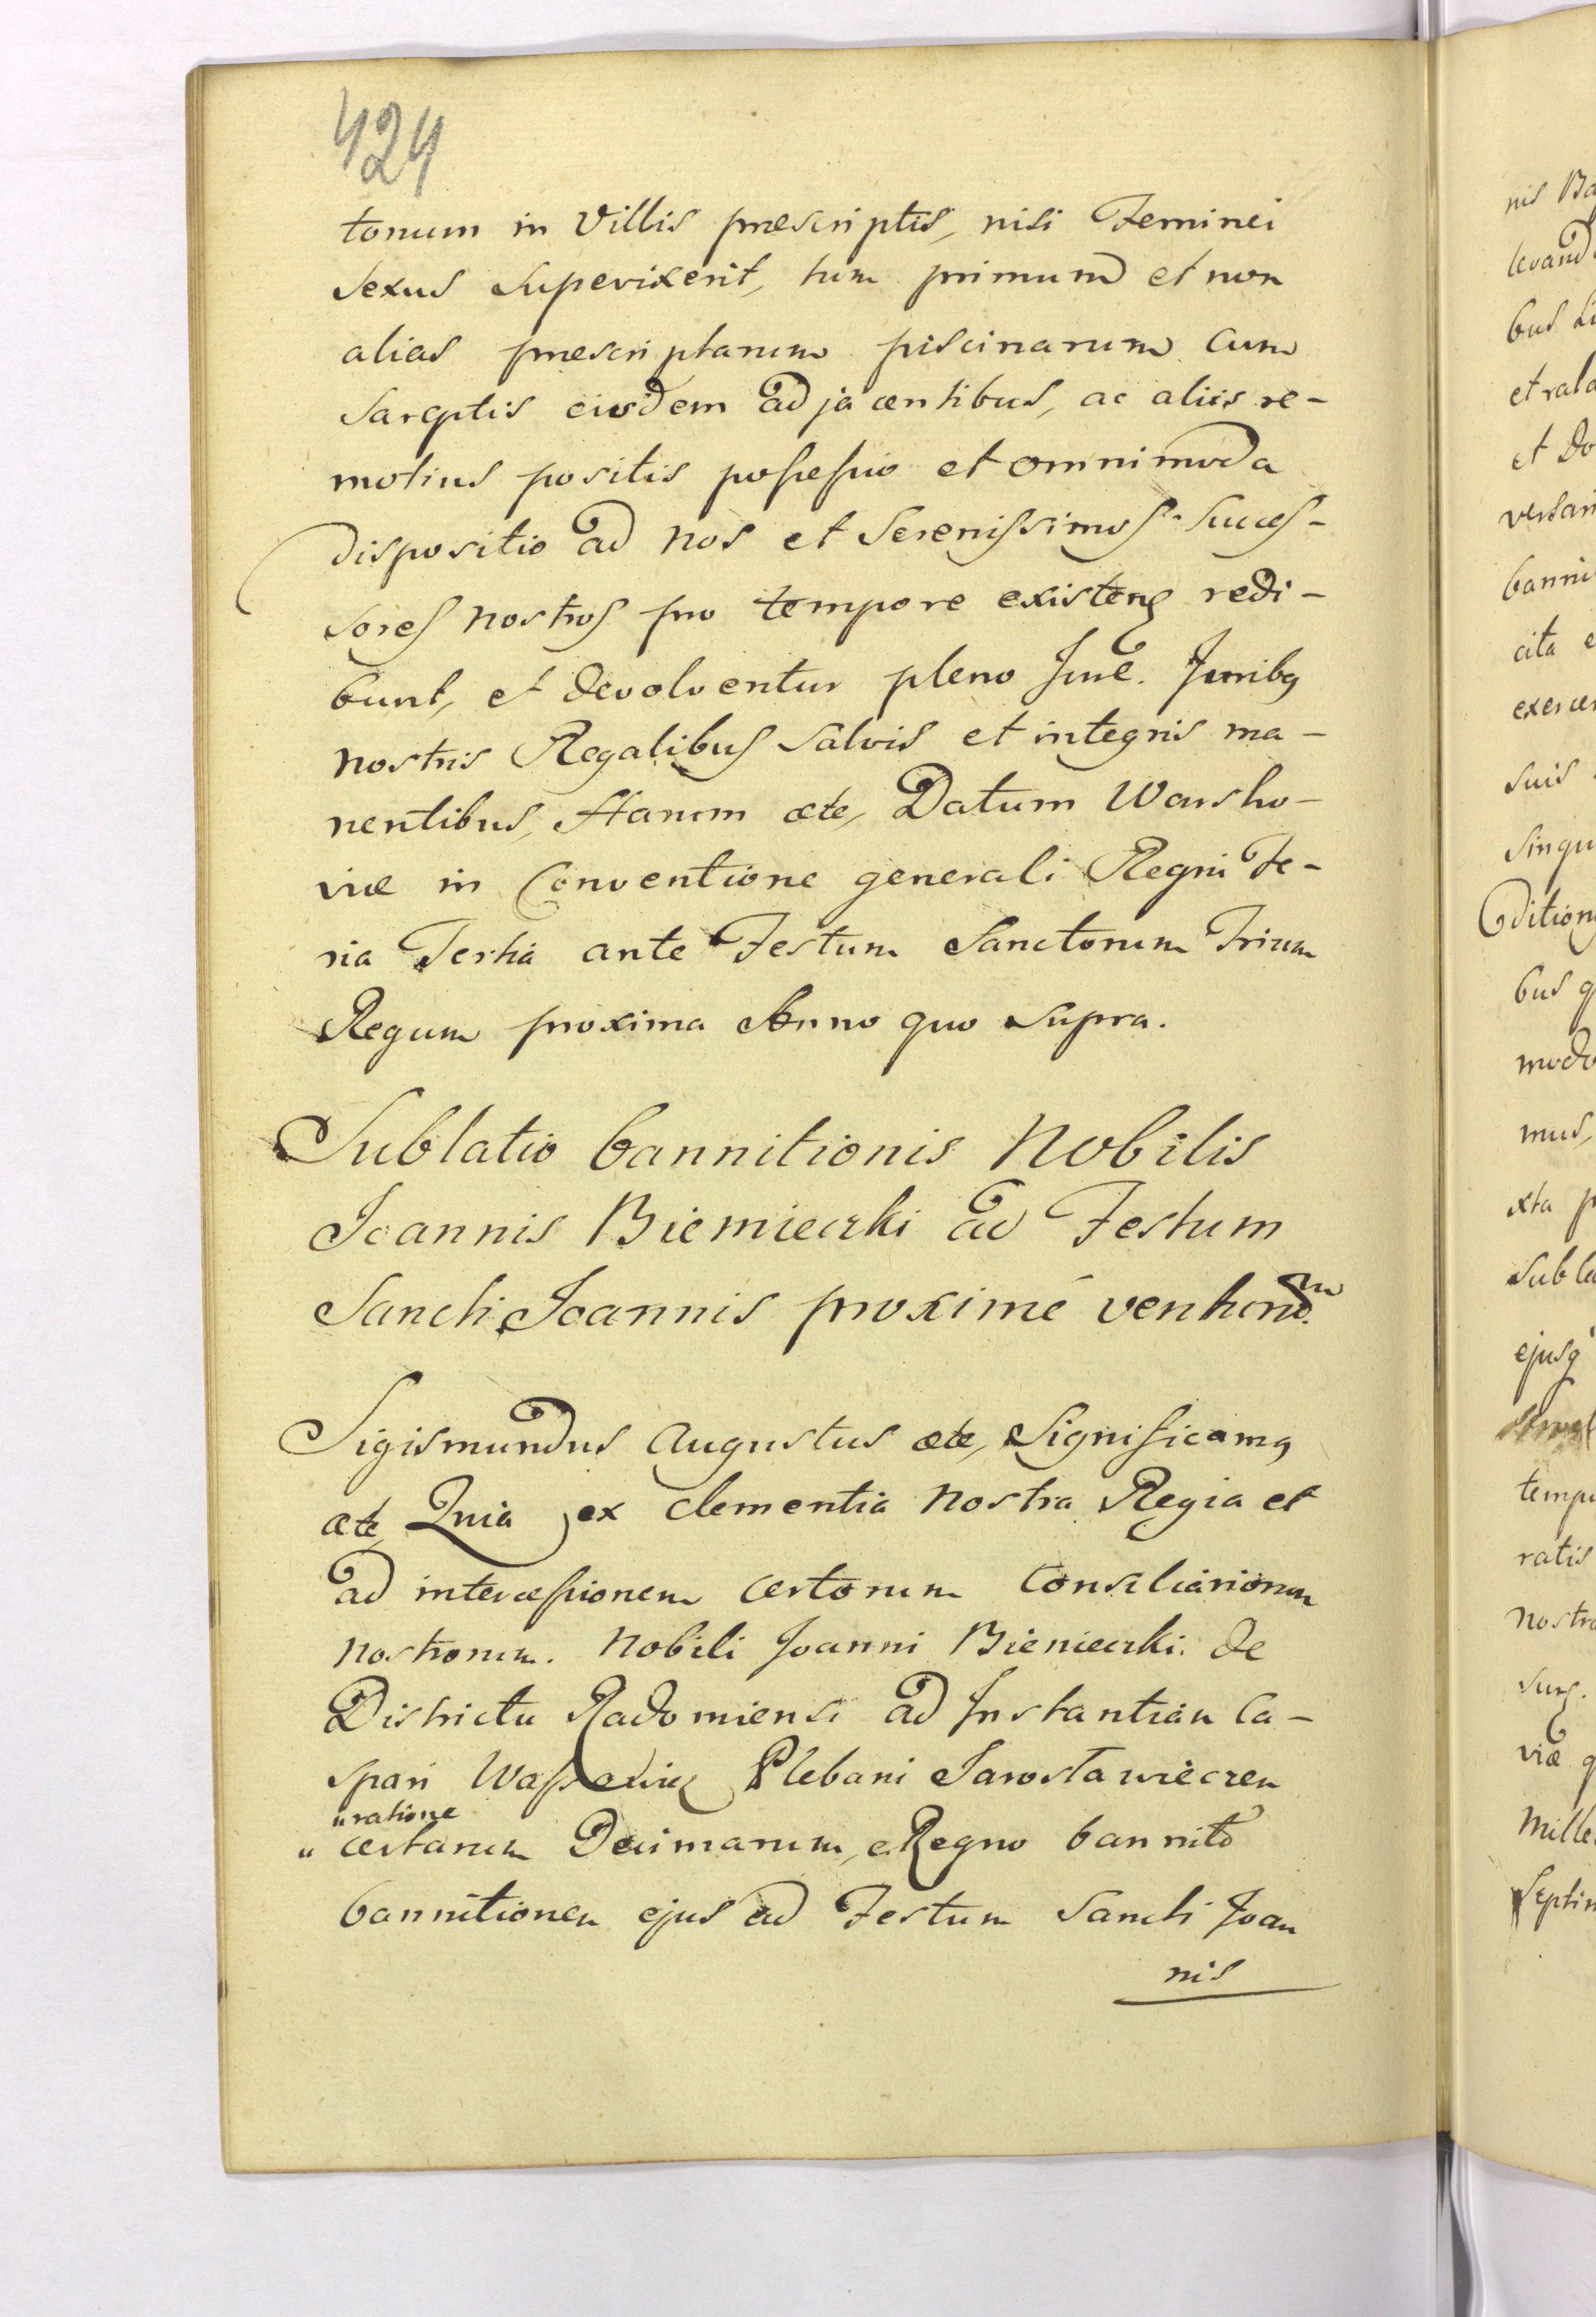 424
tonum in Villis præscriptis, nisi Feminei
Sexus Supevixerit, tum primum et non
alias præscriptarum piscinarum cum
Sareptis eiusdem adjacentibus, ac aliis re-
motius positis possessio et omnimoda
dispositio ad nos et Serenissimos Succes-
sores nostros pro tempore existens redi-
bunt, et devolventur pleno Jure. Juribq
nostris Regalibus salvis et integris ma-
nentibus, Harum ete, Datum Warsho-
viæ in Conventione generali Regni Fe-
ria Tertia ante Festum Sanctorum Trium
Regum proxima Anno quo Supra.
Sublatio bannitionis Nobilis
Joannis Biemiecki ad Festum
Sancti Joannis proximé
Sigismundus Augustus ete, Significamq
ete, Quia ex clementia Nostra Regia et
ad intercessionem certorum Consiliariorum
nostrorum. Nobili Joanni Bieniecki de
Districtu Radomiensi ad Instantiam Ca-
spari Plebani
" ratione
" certarum Decimarum, e Regno bannito
bannitionem ejus ad Festum Sancti Joan
nis
nis Ba
levand
bus Li
et rala
et Do
versari
banni
cita e
exercer
suis
singu
ditiong
bus q
modo
mus,
xta p
Subla
ejusq
tempo
ratis
nostro
viæ q
Mille
Septim